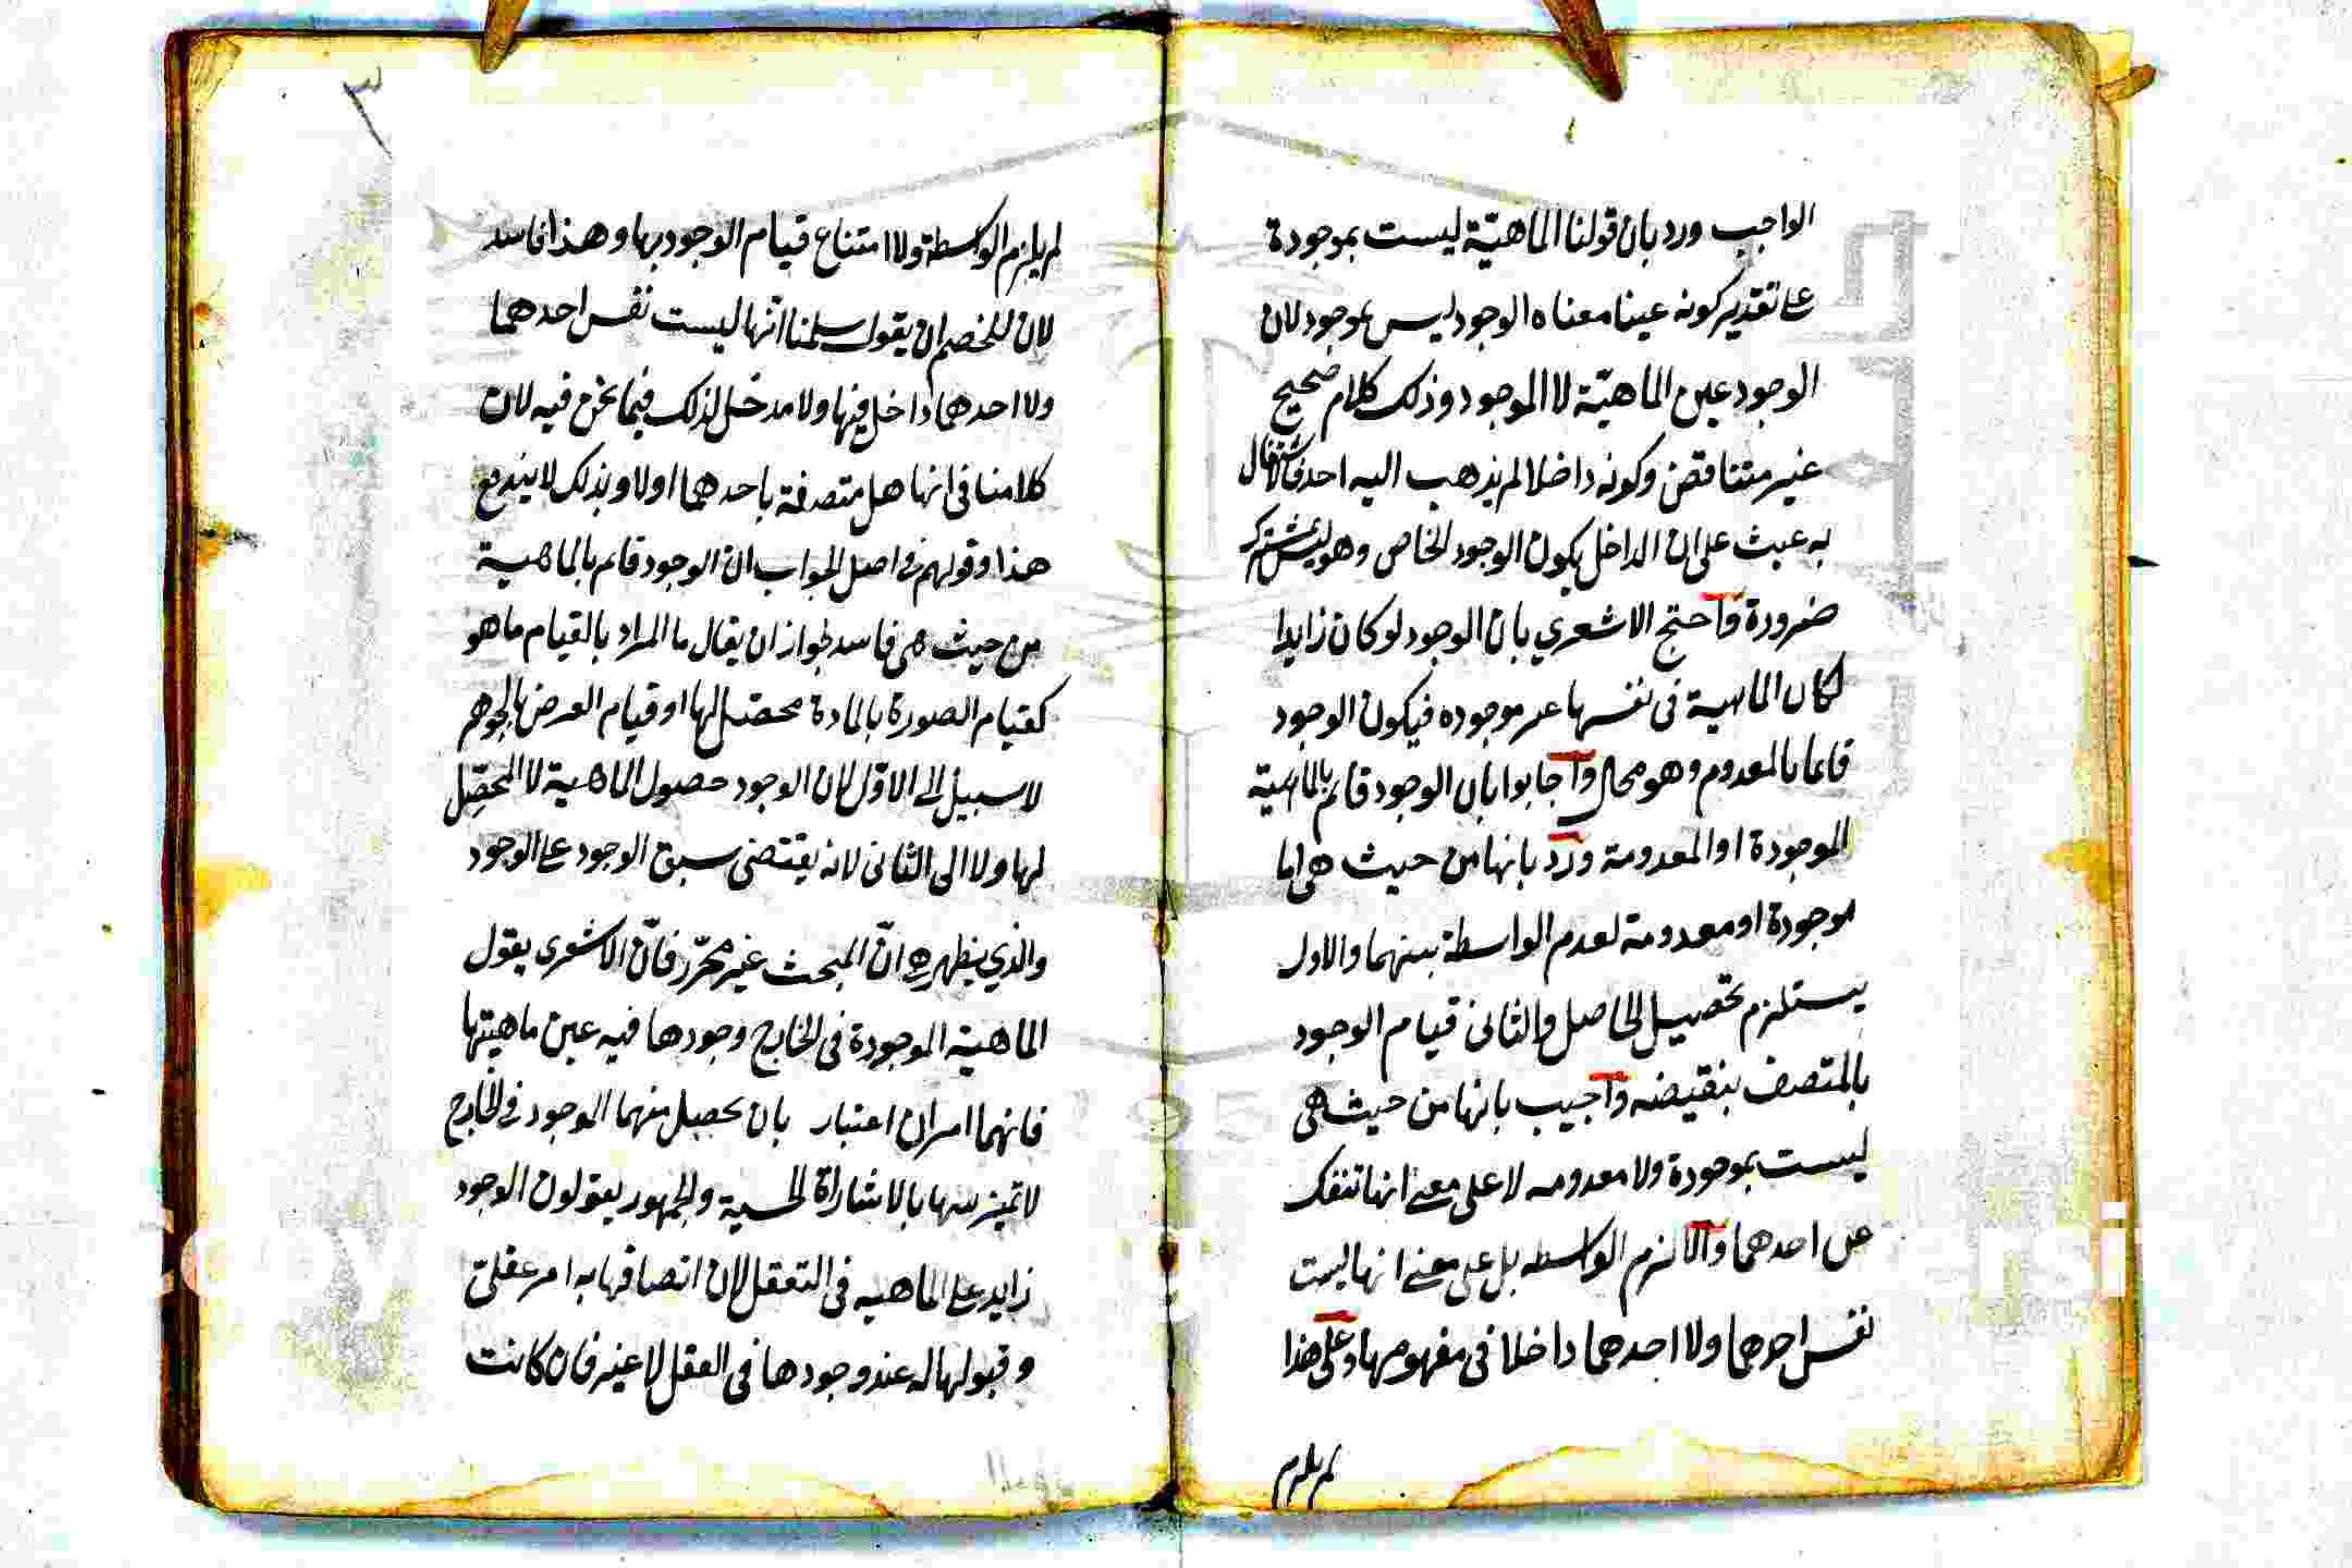 الواجب ورد بان قولنا الماهيّة ليست بموجودة
على تقدير كونه عينا معناه الوجود ليس بموجود لان
الوجود عين الماهيّة لا الموجود وذلك كلام صحيح
غير متناقض وكونه داخلا لم يذهب اليه احد
به عبث على ان الداخل يكون الوجود الخاص وهو ليس بمشترك
ضرورة واحتج الاشعري بان الوجود لو كان زايدا
لكان الماهية في نفسها غير موجوده فيكون الوجود
قايما بالمعدوم وهو محال واجابوا بان الوجود قايم بالماهية
الموجودة او المعدومة ورد بانها من حيث هي اما
موجودة او معدومة لعدم الواسطة بينهما والاول
يستلزم تحصيل الحاصل والثاني قيام الوجود
بالمتصف بنقيضه واجيب بانها من حيث هي
ليست بموجودة ولا معدومه لا على معنى انها تنفك
عن احدهما والا لزم الواسطه بل على معنى انها ليست
نفس احدهما ولا احدهما داخلا في مفهومها وعلى هذا
لم يلزم
٣
لم يلزم الواسطة ولا امتناع قيام الوجود بها وهذا فاسد
لان للخصم ان يقول سلمنا انها ليست نفس احدهما
ولا احدهما داخل فيها ولا مدخل لذلك فيما نحن فيه لان
كلامنا في انها هل متصفة باحدهما اولا وبذلك لا يندفع
هذا وقولهم في اصل الجواب ان الوجود قايم بالماهية
من حيث هي فاسد لجواز ان يقال ما المراد بالقيام ما هو
كقيام الصورة بالمادة محصّل لها او قيام العرض بالجوهر
لا سبيل الى الاوّل لان الوجود حصول الماهية لا المحصّل
لها ولا الى الثاني لانه يقتضى سبق الوجود على الوجود
والذي يظهر انّ المبحث غير محرّر فانّ الاشعرى يقول
الماهية الموجودة في الخارج وجودها فيه عين ماهيتها
فانهما امران اعتبار بان يحصل منهما الموجود في الخارج
لا تميز بينها بالاشارة الحسية والجمهور يقولون الوجود
زايد على الماهيه في التعقل لان اتصافها به امر عقلى
وقبولها له عند وجودها في العقل لا غير فان كانت